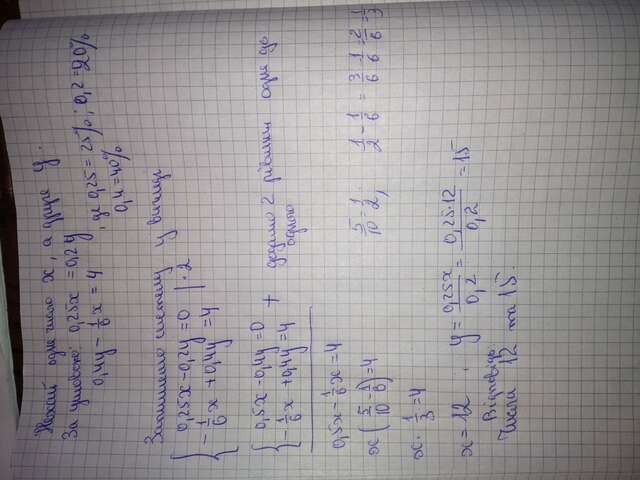 Нехай одне число x, а друге y.
За умовою: 0,25x = 0,2y
0,4y - 1/6 x = 4 , де 0,25 = 25%; 0,2 = 20%
0,4 = 40%
Запишемо систему у вигляді
{ 0,25x - 0,2y = 0 | · 2
- 1/6 x + 0,4y = 4
{ 0,5x - 0,4y = 0
- 1/6 x + 0,4y = 4 + додамо 2 рівняння одне до
одного
0,5x - 1/6 x = 4
x (5/10 - 1/6) = 4 5/10 = 1/2, 1/2 - 1/6 = 3/6 - 1/6 = 2/6 = 1/3
x · 1/3 = 4
x = 12 . y = 0,25x / 0,2 = 0,25·12 / 0,2 = 15
Відповідь
Числа 12 та 15